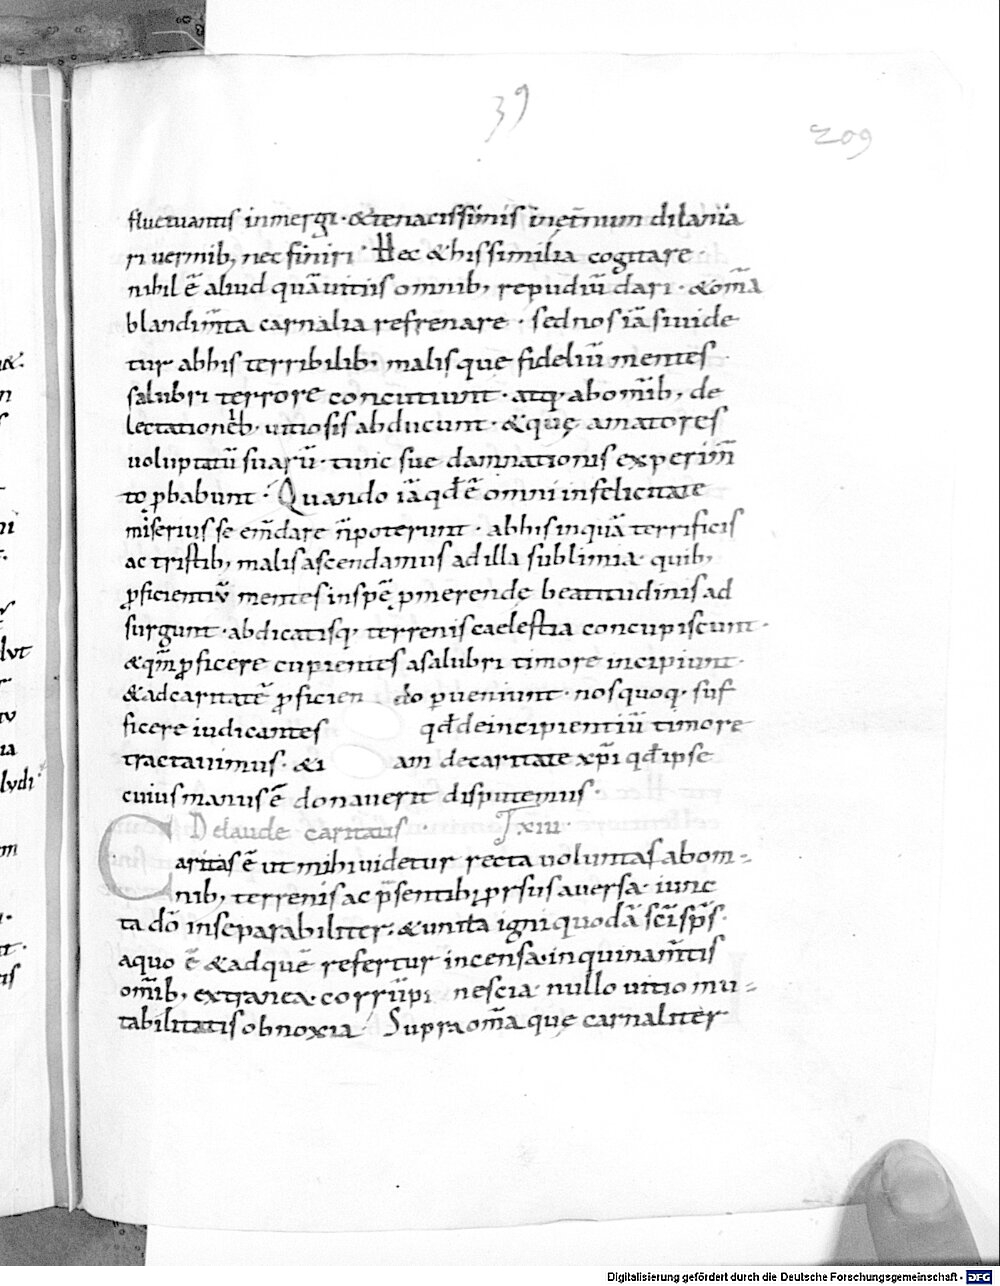 39
209
fluctuantis inmergi · & tenacissimis inęt̄num dilania
ri uermib; nec finiri · Hęc & his similia cogitare
nihil ē aliud quā uitiis omnib; repudiū dari · & om̄a
blandim̄ta carnalia refrenare · sed nos iā si uide
tur ab his terribilib; malis que fideliū mentes
salubri terrore concutiunt · atq; ab om̄ib; de
lectationib; uitiosis abducunt · & quę amatores
uoluptatū suarū · tunc sue damnationis experim̄
to ꝓbabunt · Quando iā qđ ē omni infelicitate
miserius se em̄dare n̄ poterunt · ab his inquā terrificis
ac tristib; malis ascendamus ad illa sublimia · quib;
ꝓficientiū mentes in spē ꝓmerende beatitudinis ad
surgunt · abdicatisq; terrenis caelestia concupiscunt ·
& qm̄ ꝓficere cupientes a salubri timore incipiunt ·
& ad caritatē ꝓficien do ꝑueniunt · nos quoq; suf
ficere iudicantes qđ de incipientiū timore
tractauimus · & i am de caritate xp̄i qđ ipse
cuius manus ē donauerit disputemus ·
De laude caritatis · XIII ·
Caritas ē ut mihi uidetur recta uoluntas ab om-
nib; terrenis ac p̄sentib; ꝓrsus auersa · iunc
ta dō inseparabiliter · & unita igni quodā sc̄i sp̄s ·
a quo ē & ad quē refertur incensa · inquinam̄tis
om̄ib; extranea · corrūpi nescia · nullo uitio mu-
tabilitatis obnoxia Supra om̄a quę carnaliter
Digitalisierung gefördert durch die Deutsche Forschungsgemeinschaft - DFG